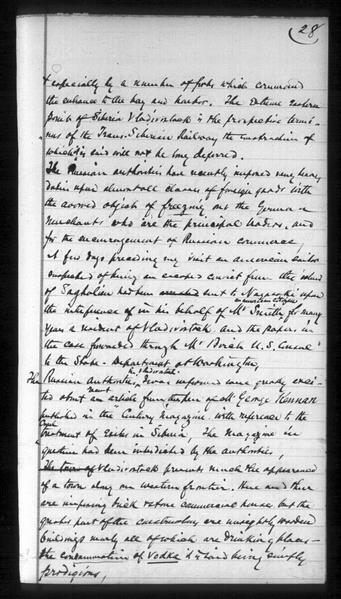 28
& especially by a number of forts which command
the entrance to the bay and harbor. The extreme eastern
point of Siberia Vladivostock is the prospective termi-
nus of the Trans-Siberian Railway the construction of
which it is said will not be long deferred.
The Russian authorities have recently imposed very heavy
duties upon almost all classes of foreign goods with
the avowed object of freezing out the German
merchants who are the principal traders, and
for the encouragement of Russian commerce,
A few days preceding my visit an american sailor
suspected of being an escaped convict from the island
of Saghalien had been sent to Nagasaki upon
the interference in his behalf of Mr Smith for many
an american citizen
years a resident of Vladivostock, and the papers in
the case forwarded through Mr Birch U.S. Consul
to the State-Department at Washington,
The Russian authorities, I was informed were greatly exci-
ted about an article from the pen of Mr George Kennan
published in the "Century magazine" with reference to the
cruel
treatment of exiles in Siberia, The Magazine in
question had been interdicted by the authorities,
The town of Vladivostock presents much the appearance
of a town along our western frontier. Here and there
are imposing brick & stone commercial houses but the
greater part of the constructions are unsightly wooden
buildings nearly all of which are drinking places—
the consumption of vodka being simply
prodigious,